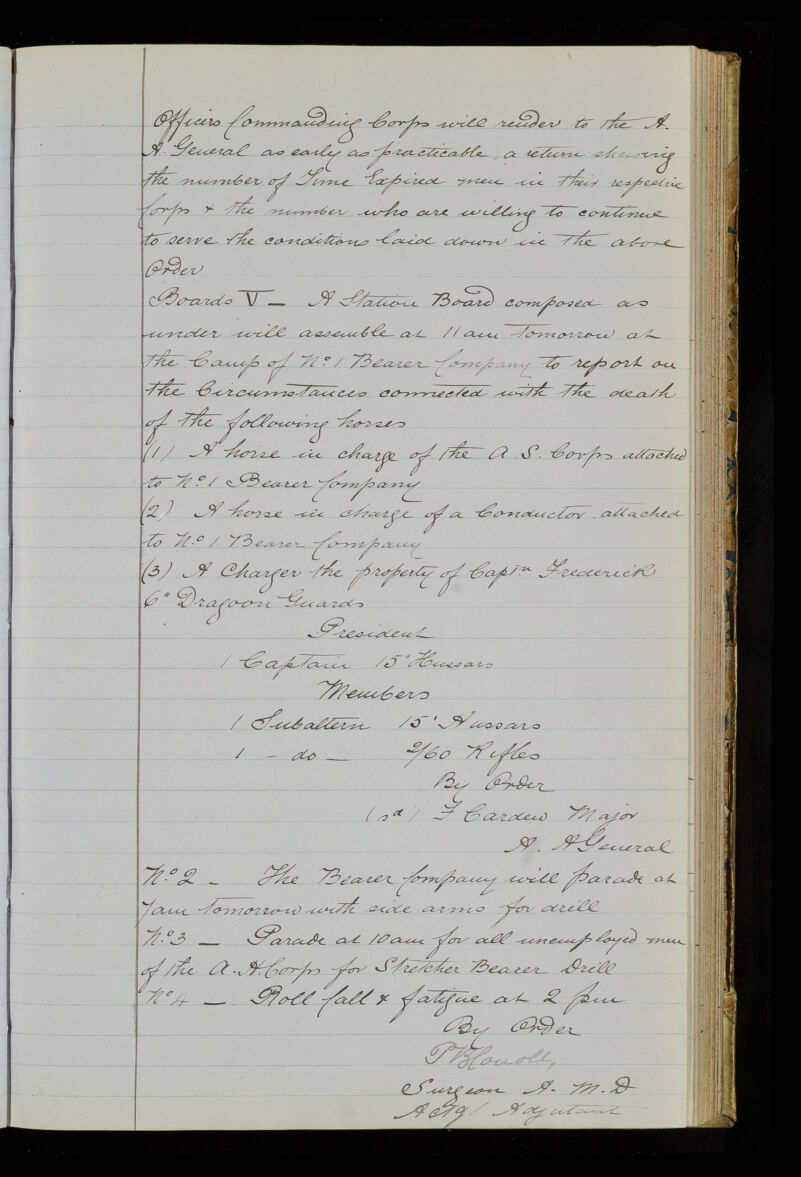 Officers Commanding Corps will render to the A.
A. General as early as practicable, a return shewing
the number of Time Expired men in their respective
Corps & the number who are willing to continue
to serve the conditions laid down in the above
Order
Boards V — A Station Board composed as
under will assemble at 11 am tomorrow at
the Camp of No. 1 Bearer Company to report on
the Circumstances connected with the death
of the following horses
(1) A horse in charge of the A. S. Corps attached
to No. 1 Bearer Company
(2) A horse in charge of a Conductor attached
to No. 1 Bearer Company
(3) A Charger the property of Captn Frederick
6" Dragoon Guards
President
1 Captain 15" Hussars
Members
1 Subaltern 15' Hussars
1 - do - 2/60 Rifles
By Order
(sd) F Carden Major
A. A General
No. 2 — The Bearer Company will parade at
7am tomorrow with side arms for drill
No. 3 — Parade at 10 am for all unemployed men
of the A. H. Corps for Stretcher Bearer Drill
No. 4 — Roll Call & fatigue at 2 pm
By Order
Surgeon A. M. D
Actg/ Adjutant